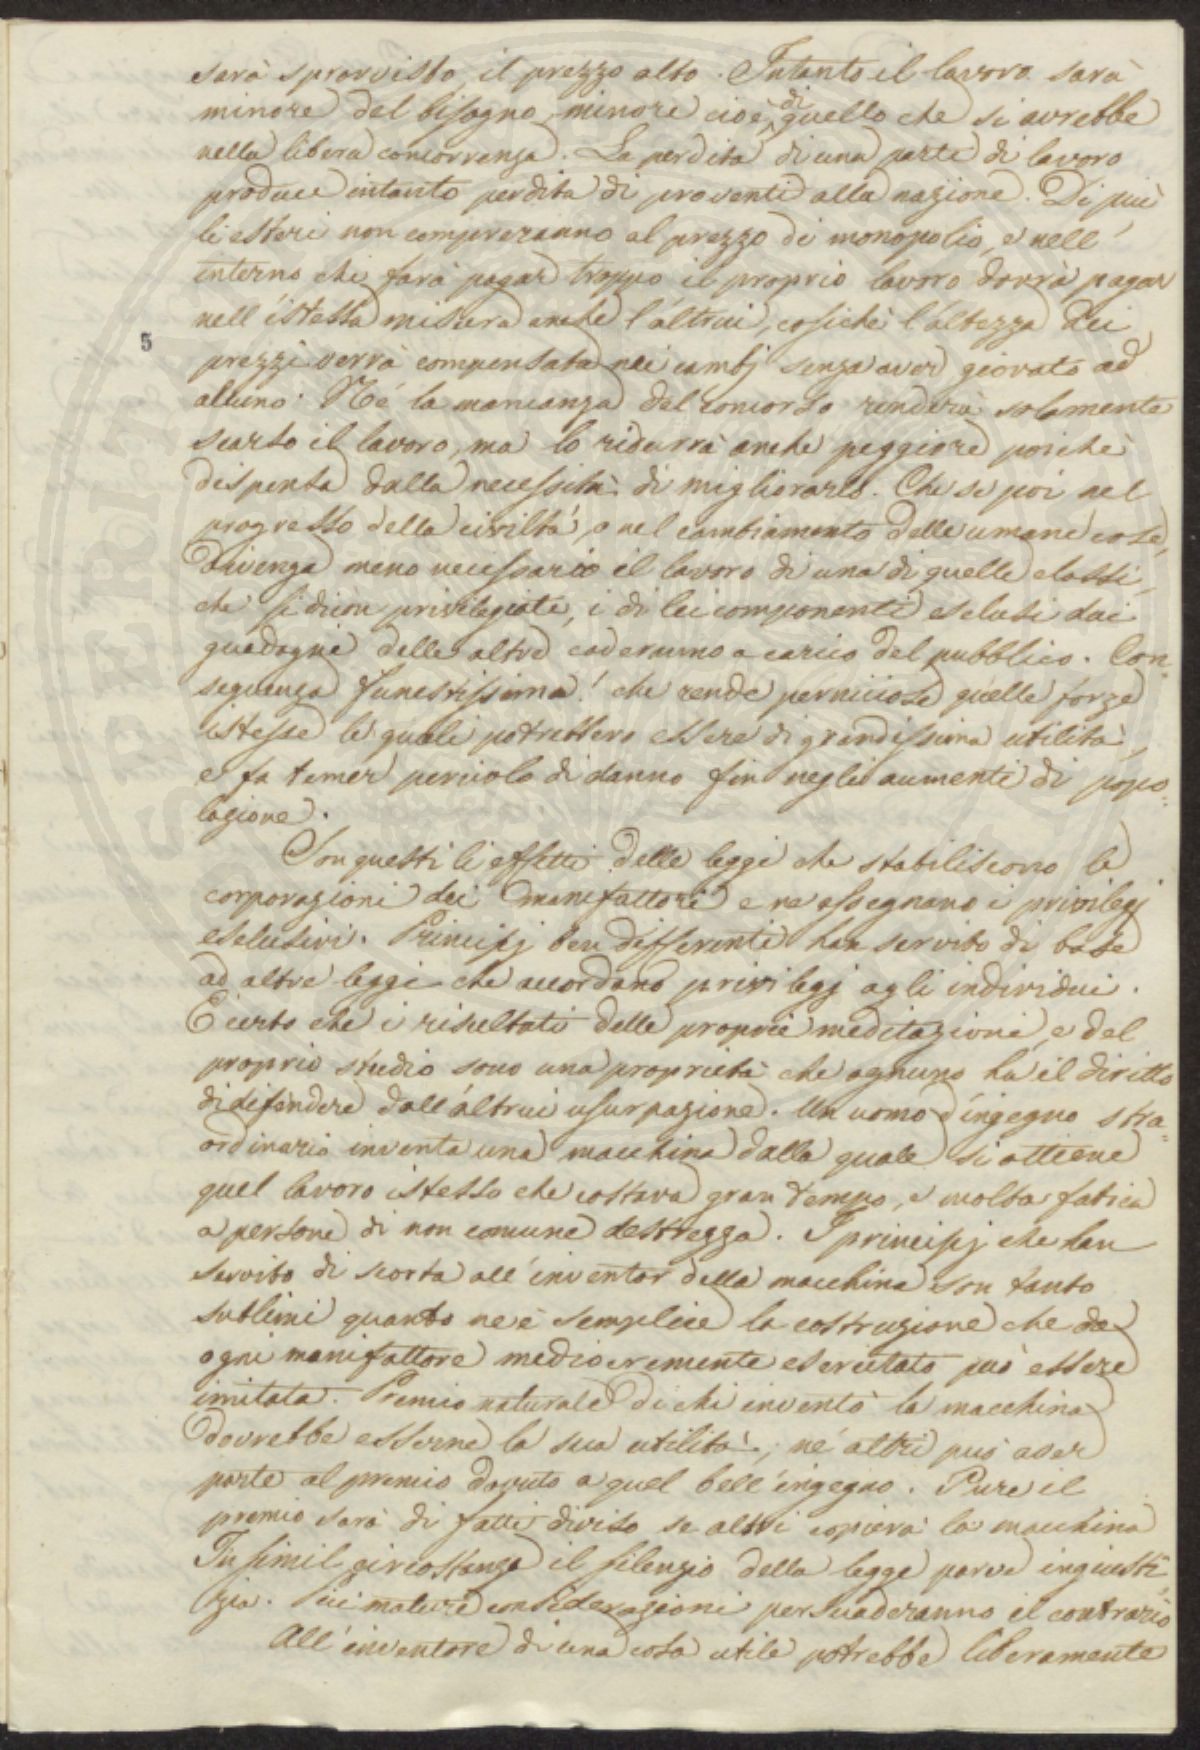 sarà sprovvisto, il prezzo alto. Intanto il lavoro sarà
minore del bisogno, minore cioè di quello che si avrebbe
nella libera concorrenza. La perdita di una parte di lavoro
produce intanto perdita di proventi alla nazione. Di più
li esteri non compreranno al prezzo di monopolio, e nell'
interno chi farà pagar troppo il proprio lavoro dovrà pagar
nell'istessa misura anche l'altrui, cosichè l'altezza dei
5
prezzi verrà compensata nei cambj senza aver giovato ad
alcuno. Nè la mancanza del concorso renderà solamente
scarso il lavoro, ma lo ridurrà anche peggiore poichè
dispensa dalla necessità di migliorarlo. Che se poi nel
progresso della civiltà, o nel cambiamento delle umane cose,
divenga meno necessario il lavoro di una di quelle classi,
che si dicon privilegiate, i di lei componenti esclusi dai
guadagni delle altre caderanno a carico del pubblico. Con-
seguenza funestissima! che rende perniciose quelle forze
istesse le quali potrebbero essere di grandissima utilità,
e fa temer pericolo di danno fin negli aumenti di popo=
lazione.
Son questi li effetti delle leggi che stabiliscono le
corporazioni dei manifattori e ne assegnano i privilegj
esclusivi. Principj ben differenti han servito di base
ad altre leggi che accordano privilegj agli individui.
È certo che i risultati delle proprie meditazioni, e del
proprio studio sono una proprietà che ognuno ha il diritto
di difendere dall'altrui usurpazione. Un uomo d'ingegno stra=
ordinario inventa una macchina dalla quale si ottiene
quel lavoro istesso che costava gran tempo, e molta fatica
a persone di non comune destrezza. I principj che han
servito di scorta all'inventor della macchina son tanto
sublimi quanto ne è semplice la costruzione che da
ogni manifattore mediocremente esercitato può essere
imitata. Premio naturale di chi inventò la macchina
dovrebbe esserne la sua utilità; nè altri può aver
parte al premio dovuto a quel bell'ingegno. Pure il
premio sarà di fatti diviso se altri copierà la macchina
In simil circostanza il silenzio della legge parve ingiusti
zia. Più mature considerazioni persuaderanno il contrario
All'inventore di una cosa utile potrebbe liberamente